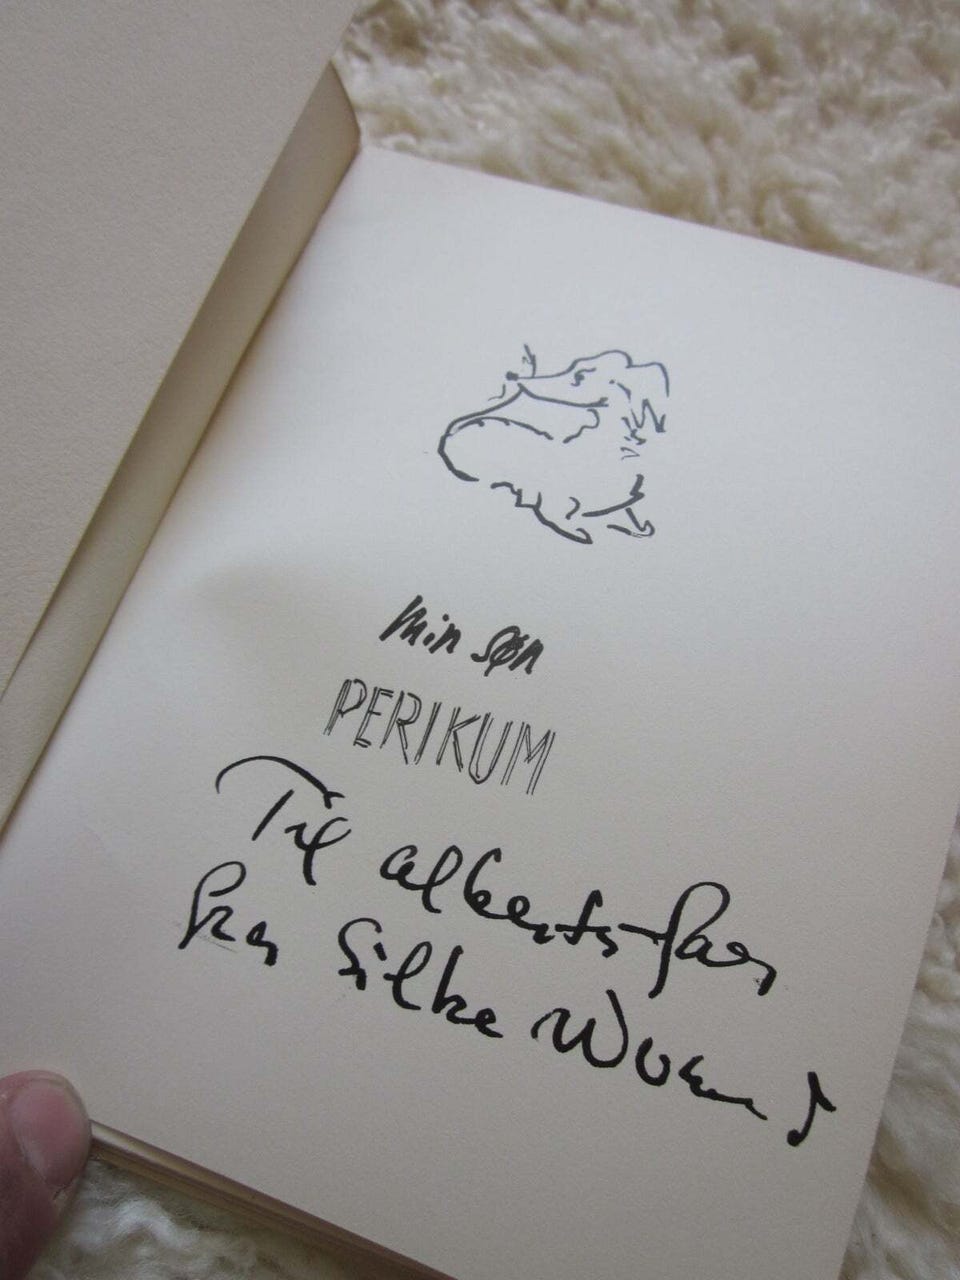 min søn
PERIKUM
Til alberts far
fra Silke